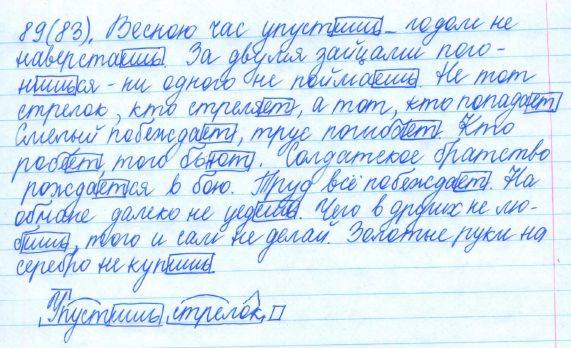 89(83). Весною час упустишь – годом не
наверстаешь. За двумя зайцами пого-
нишься – ни одного не поймаешь. Не тот
стрелок, кто стреляет, а тот, кто попадает.
Смелый побеждает, трус погибает. Кто
робеет, того бьют. Солдатское братство
рождается в бою. Труд всё побеждает. На
обмане далеко не уедешь. Чего в других не лю-
бишь, того и сам не делай. Золотые руки на
серебро не купишь.
Упустишь, стрелок